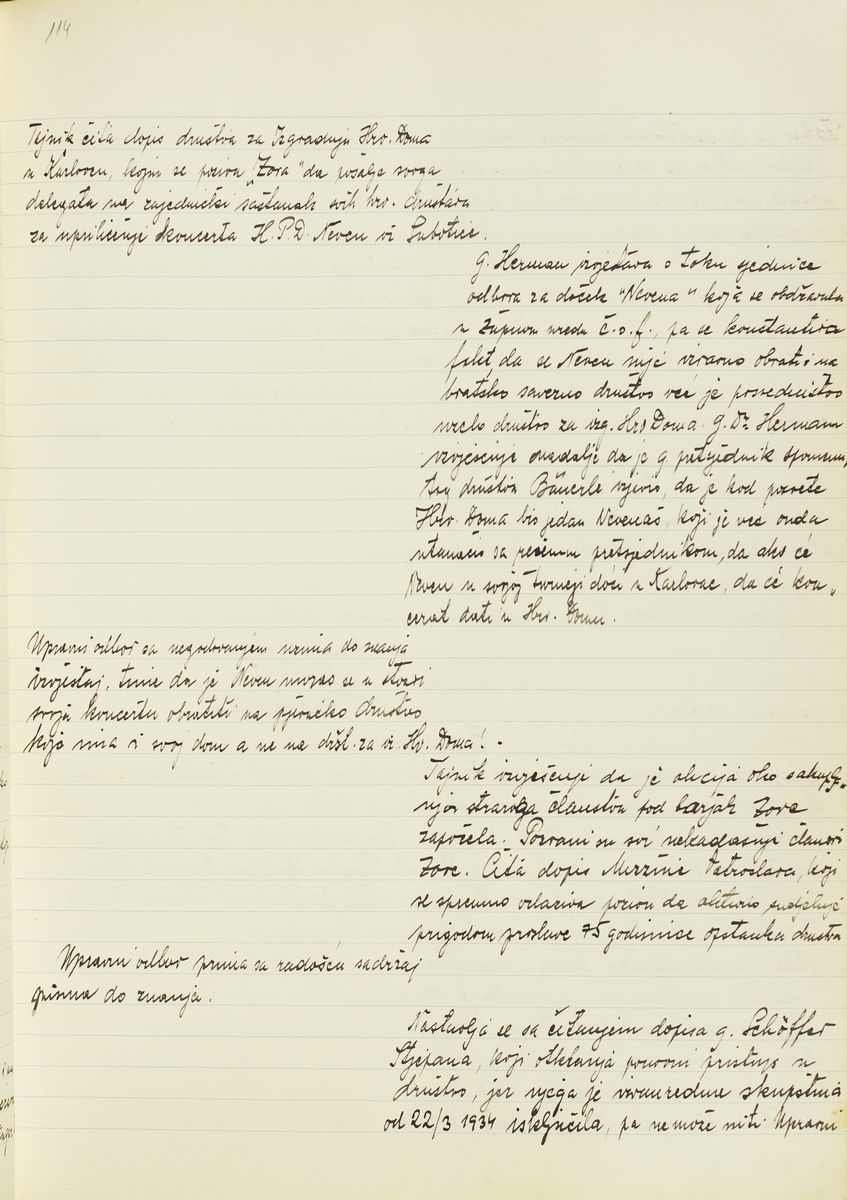 114
Tajnik čita dopis društva za Izgradnju Hrv. Doma
u Karlovcu, kojim se poziva "Zora" da pošalje svoga
delegata na zajednički sastanak svih hrv. društava
za upriličenje koncerta H.P.D. Neven iz Subotice.
G. Herman izvješćava o toku sjednice
odbora za doček "Nevena" koja se obdržavala
u župnom uredu č.o.f., pa se konstantira
fakt, da se Neven nije izravno obratio na
bratsko savezno društvo već je posredništvo
društvo za izg. Hrv Doma. G. Dr. Hermann
izvješćuje nadalje da je g. pretsjednik
tog društva Bäuerle izjavio, da je kod posvete
Hrv. Doma bio jedan Nevenaš, koji je već onda
utanačio sa pretsjednikom, da ako će
Neven u svojoj turneji doći u Karlovac, da će kon„
cerat dati u Hrv. Domu.
Upravni odbor sa negodovanjem uzima do znanja
izvještaj, time da je Neven morao se u stvari
svoga koncerta obratiti na pjevačko društvo
koje ima i svoj dom a ne na držt. za iz. Hv. Doma! -
Tajnik izvješćuje da je akcija oko sakup„
njor staroga članstva pod barjak Zore
započela. Pozvani su svi nekadašnji članovi
Zore. Čita dopis Vatroslava, koji
se spremno odaziva pozivu da aktivno sudjeluje
prigodom proslave 75 godišnice opstanka društva
Upravni odbor prima sa radošću sadržaj
pisma do znanja.
Nastavlja se sa čitanjem dopisa g. Schöffer
Stjepana, koji otklanja ponovni pristup u
društvo, jer njega je izvanredna skupština
od 22/3 1934 isključila, pa ne može niti Upravni